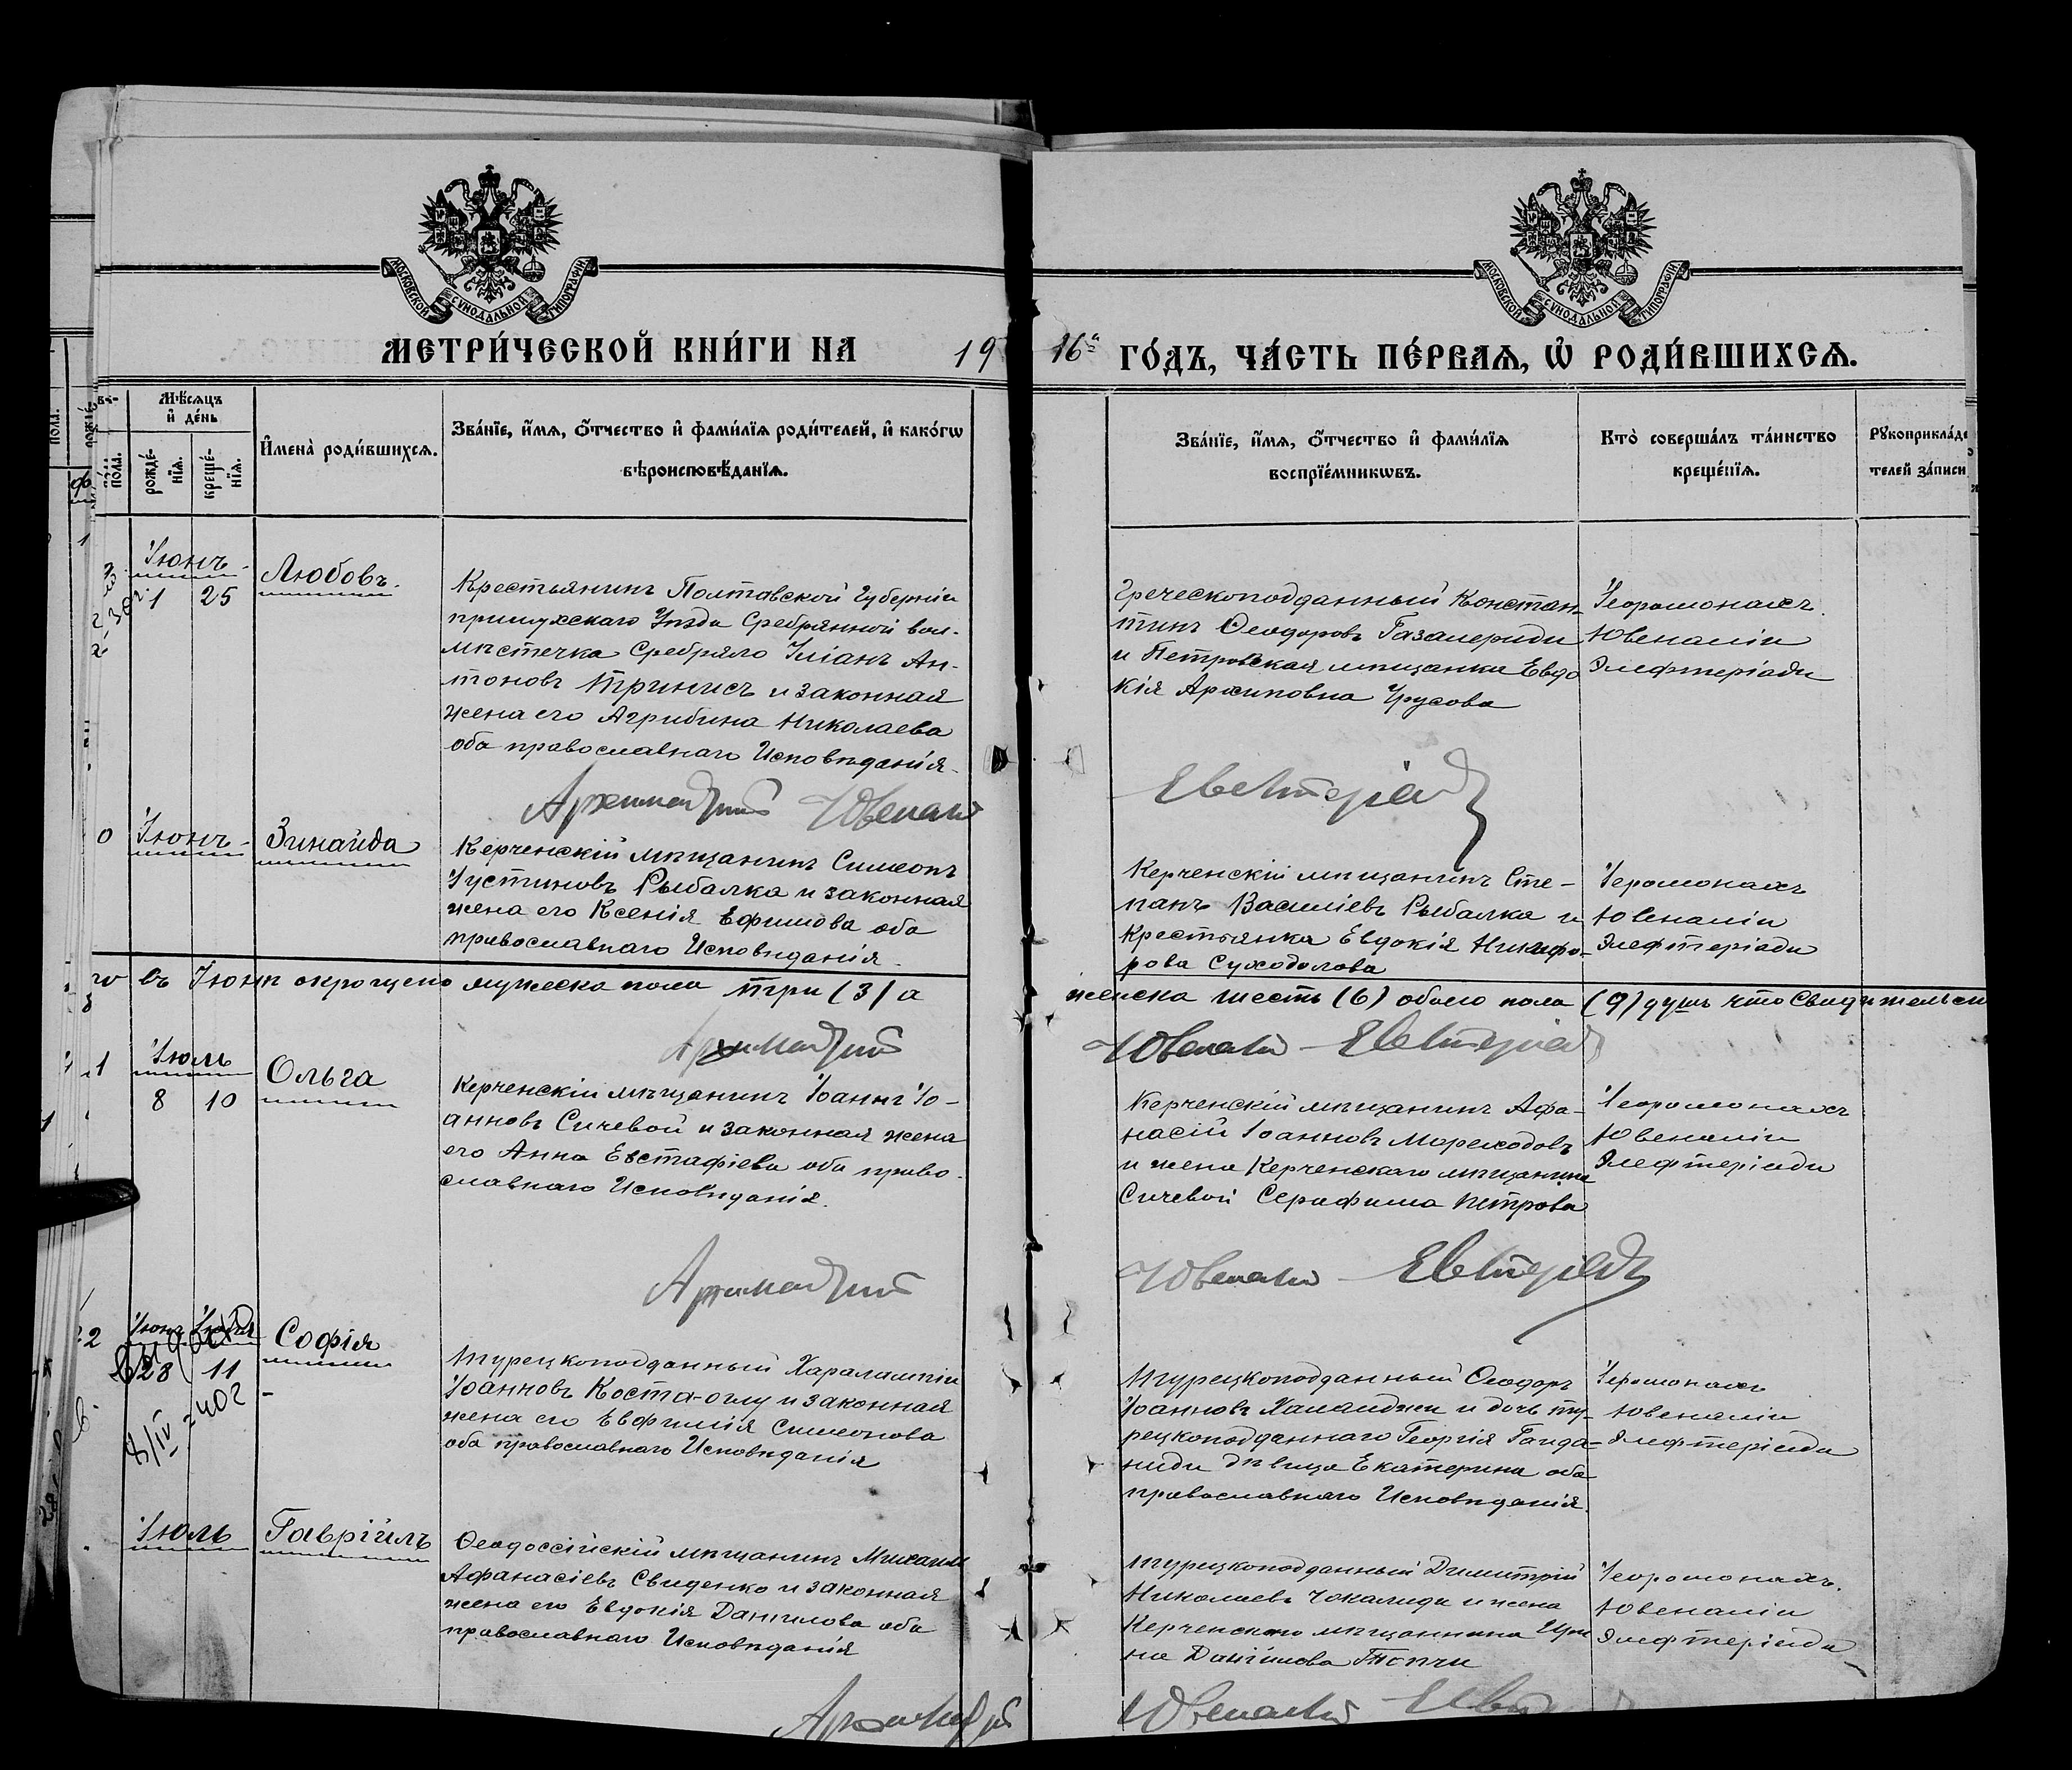 МОСКОВСКОЙ СѴНОДАЛЬНОЙ ТИПОГРАФІИ
МОСКОВСКОЙ СѴНОДАЛЬНОЙ ТИПОГРАФІИ
МЕТРИ́ЧЕСКОЙ КНИ́ГИ НА 19 16 ГО́ДЪ, ЧА́СТЬ ПЕ́РВАЯ, Ѡ҆ РОДИ́ВШИХСЯ.
Мѣ́сяцъ
и҆ де́нь
рожде́-
нїя.
креще́-
нїя.
И҆мена̀ роди́вшихся.
Зва́нїе, и҆́мя, ѻ҆́тчество и҆ фами́лїя роди́телей, и҆ како́гѡ
вѣроисповѣ́данїя.
Зва́нїе, и҆́мя, ѻ҆́тчество и҆ фами́лїя
воспрїе́мникѡвъ.
Кто̀ соверша́лъ та́инство
креще́нїя.
Рꙋкоприкла́д
телей за́писи
Іюнь
1 25
Любовь
Крестьянинъ Полтавской Губерніи
Уѣзда Сребрянной вол.
мѣстечка Сребряно Ан-
тоновъ и законная
жена его Агрибина Николаева
оба православнаго Исповѣданія.
Греческоподданный Констан-
тинъ Ѳеодоровъ
и Петровская мѣщанка Евдо
кія Архиповна Урусова
Іеромонахъ
Ювеналій
Элефтеріади
Архимандритъ Ювеналій
Іюнь
Зинаида
Керченскій мѣщанинъ Симеонъ
Іустиновъ Рыбалка и законная
жена его Ксенія Ефимова оба
православнаго Исповѣданія.
Керченскій мѣщанинъ Сте-
панъ Василіевъ Рыбалка и
Крестьянка Евдокія Никифо-
рова Суходолова
Іеромонахъ
Ювеналій
Элефтеріади
въ Іюнѣ окрещено мужеска пола три (3) а
женска шесть (6) обоего пола (9) душъ что
Архимандритъ
Ювеналій
1
Іюль
8 10
Ольга
Керченскій мѣщанинъ Іоаннъ Іо-
анновъ Сичевой и законная жена
его Анна Евстафіева оба право-
славнаго Исповѣданія.
Керченскій мѣщанинъ Афа-
насій Іоанновъ Мореходовъ
и жена Керченскаго мѣщанина
Сичевой Серафима Петрова
Іеромонахъ
Ювеналій
Элефтеріади
Архимандритъ
Ювеналій
2
28 11
Софія
Турецкоподданный Харалампій
Іоанновъ Коста-оглу и законная
жена его Евфимія Симеонова
оба православнаго Исповѣданія
Турецкоподданный Ѳеодоръ
Іоанновъ и дочь ту-
рецкоподданнаго Георгія
дѣвица Екатерина оба
православнаго Исповѣданія.
Іеромонахъ
Ювеналій
Элефтеріади
Іюль
Гавріилъ
Ѳеодоссійскій мѣщанинъ Михаилъ
Афанасіевъ Свиденко и законная
жена его Евдокія Данилова оба
православнаго Исповѣданія
Турецкоподданный Димитрій
Николаевъ Чокалиди и жена
Керченскаго мѣщанина
на Даніилова Топчи
Іеромонахъ
Ювеналій
Элефтеріади
Ювеналій